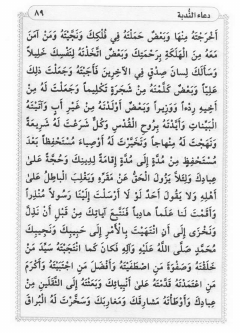 دعاء الندبة ٨٩
أَخْرَجْتَهُ مِنْهَا وَبَعْضٌ حَمَلْتَهُ فِي فُلْكِكَ وَنَجَّيْتَهُ وَمَنْ آمَنَ
مَعَهُ مِنَ الْهَلَكَةِ بِرَحْمَتِكَ وَبَعْضٌ اتَّخَذْتَهُ لِنَفْسِكَ خَلِيلاً
وَسَأَلَكَ لِسانَ صِدْقٍ فِي الآخِرِينَ فَأَجَبْتَهُ وَجَعَلْتَ ذلِكَ
عَلِيّاً وَبَعْضٌ كَلَّمْتَهُ مِنْ شَجَرَةٍ تَكْلِيماً وَجَعَلْتَ لَهُ مِنْ
أَخِيهِ رِدْءاً وَوَزِيراً وَبَعْضٌ أَوْلَدْتَهُ مِنْ غَيْرِ أَبٍ وَآتَيْتَهُ
الْبَيِّنَاتِ وَأَيَّدْتَهُ بِرُوحِ الْقُدُسِ وَكُلٌّ شَرَعْتَ لَهُ شَرِيعَةً
وَنَهَجْتَ لَهُ مِنْهاجاً وَتَخَيَّرْتَ لَهُ أَوْصِياءَ مُسْتَحْفِظاً بَعْدَ
مُسْتَحْفِظٍ مِنْ مُدَّةٍ إِلَى مُدَّةٍ إِقَامَةً لِدِينِكَ وَحُجَّةً عَلَى
عِبادِكَ وَلِئَلاَّ يَزُولَ الْحَقُّ عَنْ مَقَرِّهِ وَيَغْلِبَ الْباطِلُ عَلَى
أَهْلِهِ وَلا يَقُولَ أَحَدٌ لَوْ لا أَرْسَلْتَ إِلَيْنَا رَسُولاً مُنْذِراً
وَأَقَمْتَ لَنا عَلَماً هادِياً فَنَتَّبِعَ آياتِكَ مِنْ قَبْلِ أَنْ نَذِلَّ
وَنَخْزَى إِلَى أَنِ انْتَهَيْتَ بِالْأَمْرِ إِلَى حَبِيبِكَ وَنَجِيبِكَ
مُحَمَّدٍ صَلَّى اللَّهُ عَلَيْهِ وَآلِهِ فَكَانَ كَمَا انْتَجَبْتَهُ سَيِّدَ مَنْ
خَلَقْتَهُ وَصَفْوَةَ مَنِ اصْطَفَيْتَهُ وَأَفْضَلَ مَنِ اجْتَبَيْتَهُ وَأَكْرَمَ
مَنِ اعْتَمَدْتَهُ قَدَّمْتَهُ عَلَى أَنْبِيائِكَ وَبَعَثْتَهُ إِلَى الثَّقَلَيْنِ مِنْ
عِبادِكَ وَأَوْطَأْتَهُ مَشارِقَكَ وَمَغارِبَكَ وَسَخَّرْتَ لَهُ الْبُراقَ